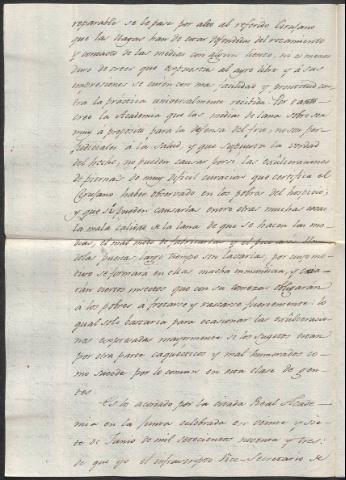 reparable se le pase por alto al referido Cirujano
que las llagas han de estar defendidas del rozamiento
y contacto de las medias con algun lienzo, no es menos
duro de creer que expuesta al ayre libre y á sus
impresiones se curen con mas facilidad y prontitud con
tra la práctica universalmente recibida. Por tanto
cree la Academia que las medias de lana sobre ser
muy á propósito para la defensa del frio, no son per
judiciales á la salud, y que supuesta la verdad
del hecho, no pueden causar por si las exulceraciones
de piernas de muy dificil curacion que certifica el
Cirujano haber observado en los pobres del hospicio;
y que si pueden causarlas entre otras muchas cosas
la mala calidad de la lana de que se hacen las me
dias, el mal modo de fabricarlas y el
puestas largo tiempo sin lavarlas, por cuyo mo
tivo se formará en ellas mucha inmundicia, y
ciertos insectos que con su comezon obligarán
á los pobres á frotarse y rascarse fuertemente: lo
qual solo bastaria para ocasionar las exulceracio
nes expresadas mayormente si los sugetos eran
por otra parte caquecticos y mal humorados co
mo sucede por lo comun en esta clase de gen
tes.
Es lo acordado por la citada Real Acade
mia en la Junta celebrada en veinte y sie
te de Junio de mil setecientos noventa y tres:
de que yo el infraescripto Vice-Secretario de